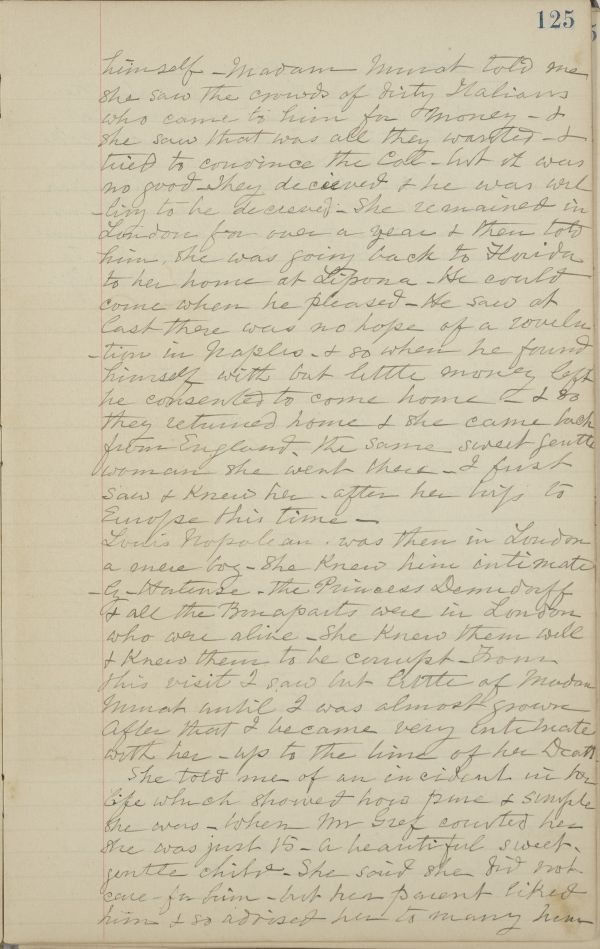 125
himself - Madam Murat told me
she saw the crowds of dirty Italians
who came to him for money - &
she saw that was all they wanted - &
tried to convince the Col - but it was
no good - They decieved & he was wil
-ling to be decieved - She remained in
London for over a year & then told
him, she was going back to Florida
to her home at Lipona - He could
come when he pleased - He saw at
last there was no hope of a revolu
-tion in Naples - & so when he found
himself with but little money left
he consented to come home - & so
they returned home & she came back
from England, the same sweet gentle
woman she went there - I first
saw & knew her - after her trip to
Europe this time -
Louis Napolean - was then in London
a mere boy - She knew him intimate
-ly - Hortense - the Princess Demidorff
& all the Bonaparts were in London
who were alive - She knew them well
& knew them to be corrupt - From
this visit I saw but little of Madam
Murat until I was almost grown
After that I became very intimate
with her - up to the time of her Death
She told me of an incident in her
life which showed how pure & simple
she was - When Mr Gref courted her
she was just 15 - a beautiful sweet -
gentle child - She said she did not
care for him - but her parent liked
him & so advised her to marry him